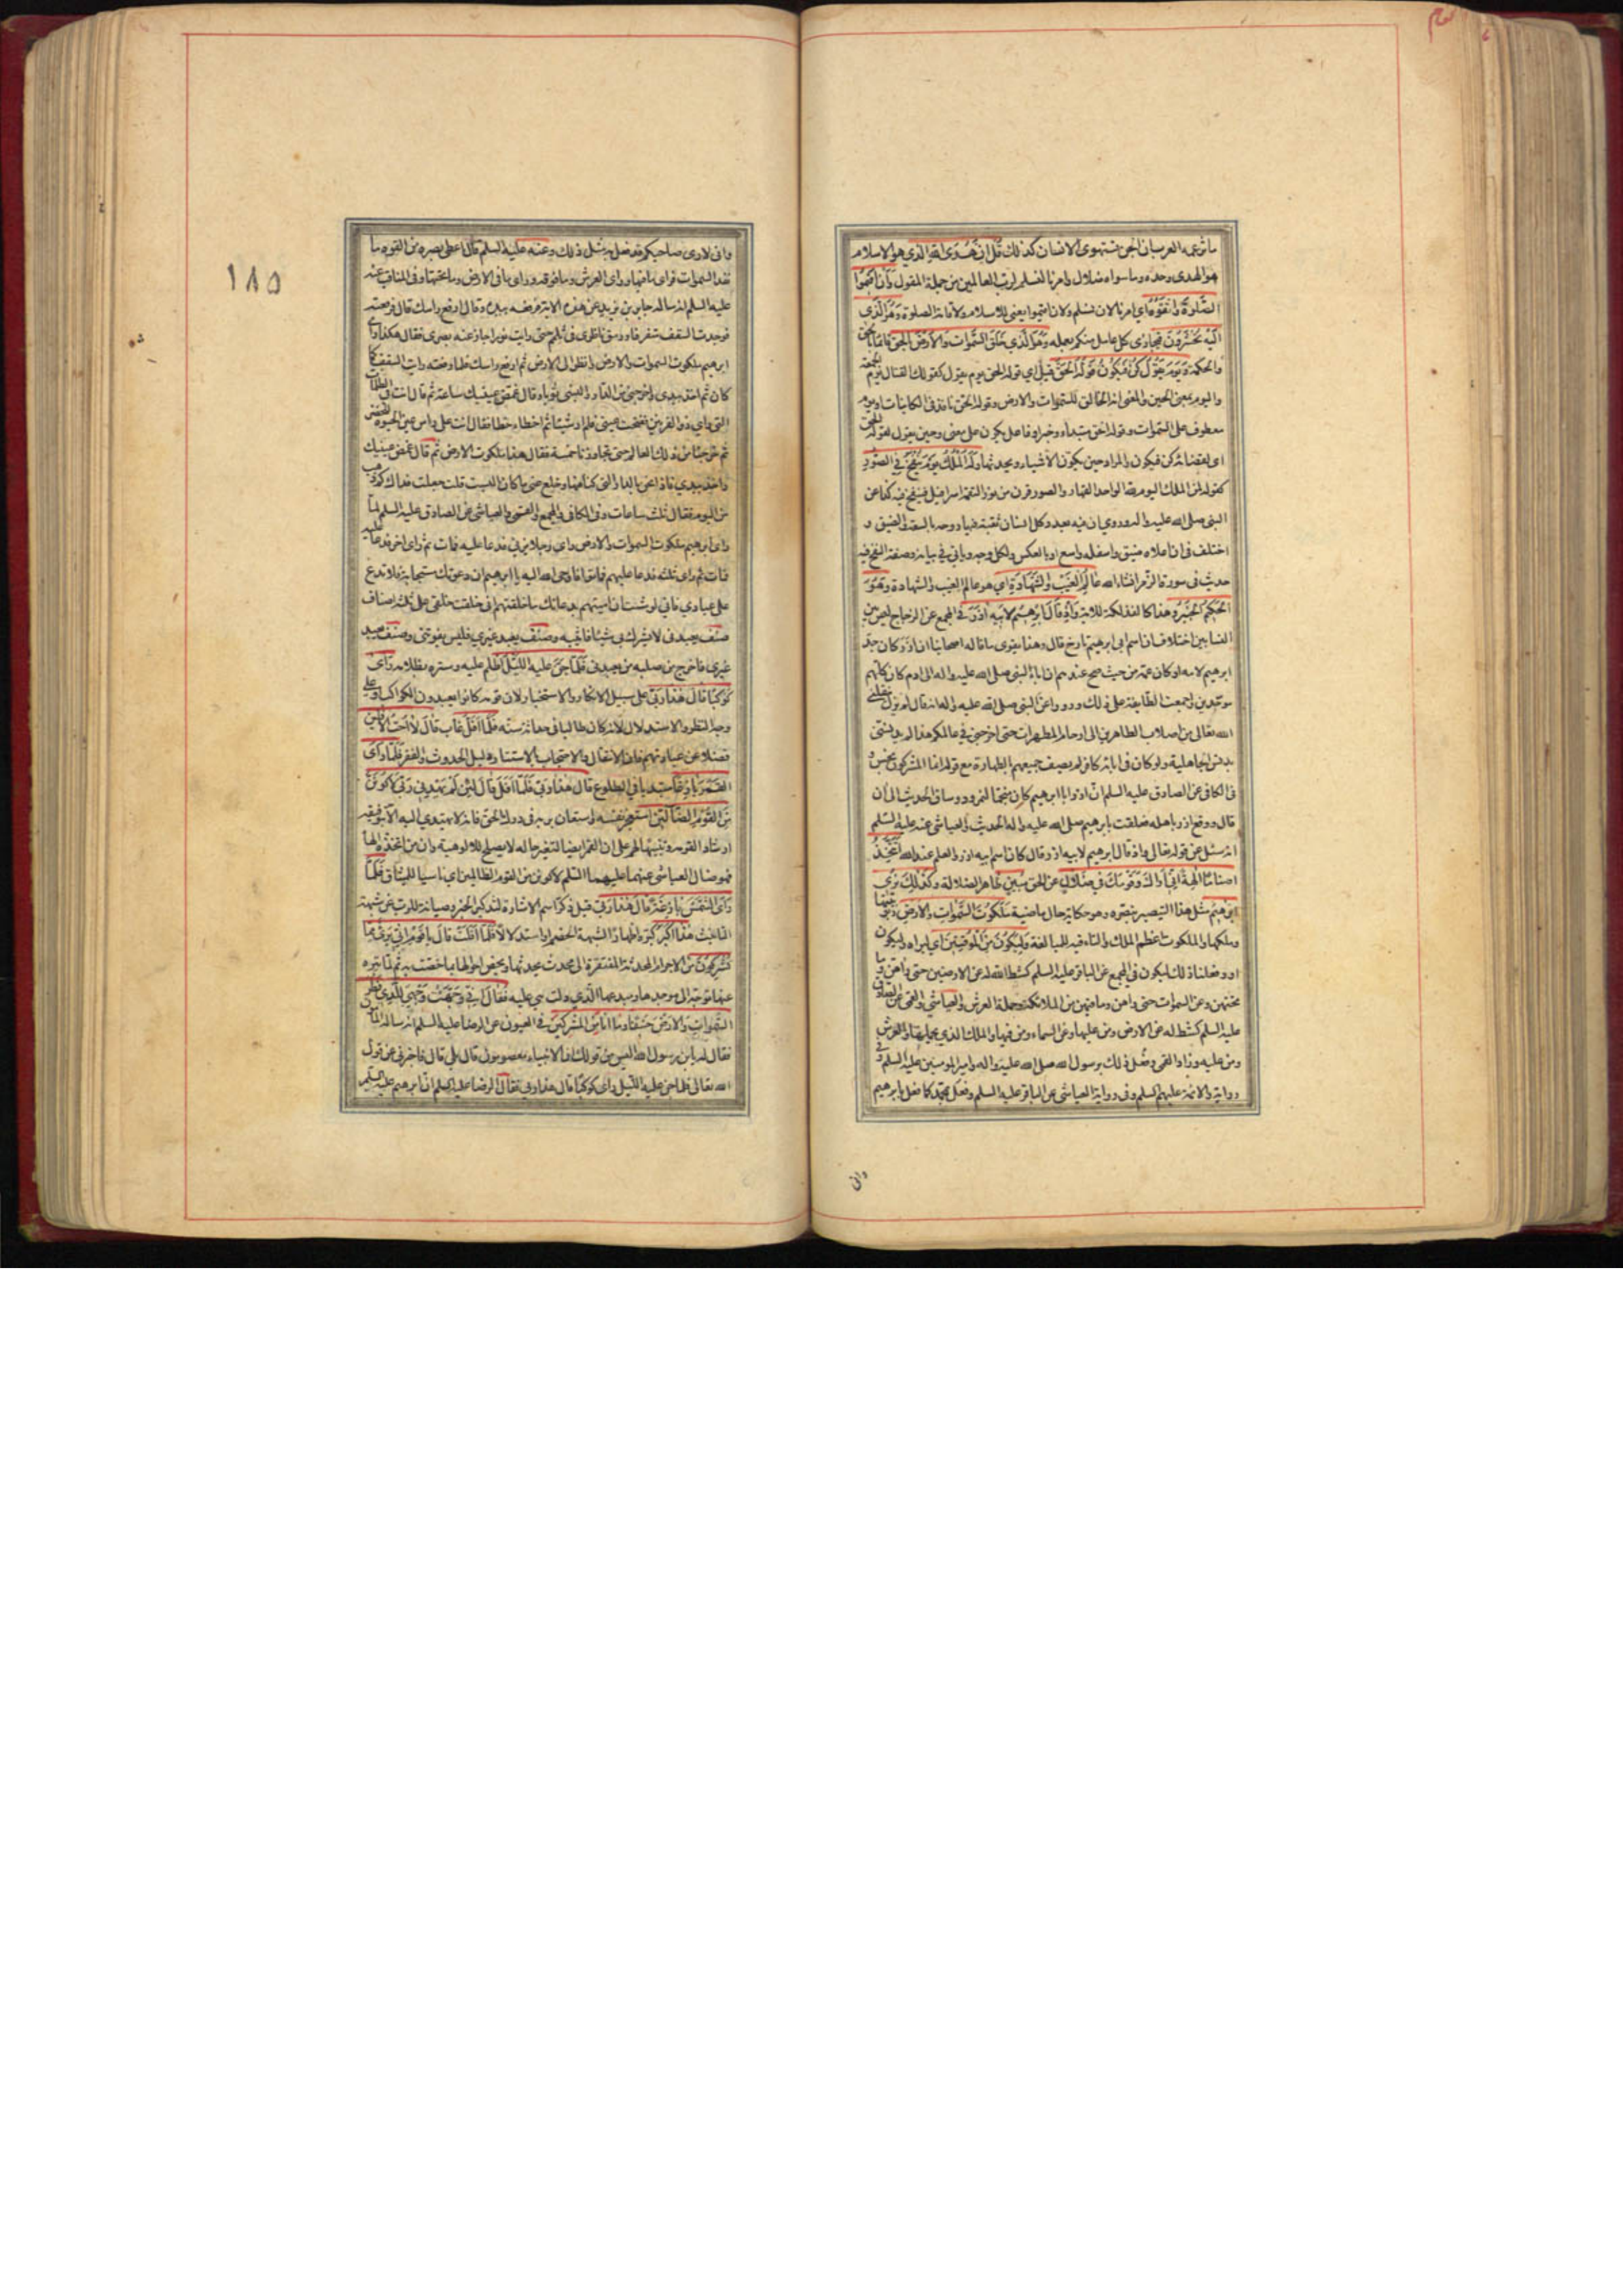 ما تزعمه العرب ان الجن تستهوى الانسان كذلك قُلْ اِنَّ هُدَى اللهِ الذي هو الاسلام
هو الهدى وحده وما سواه ضلال وامرنا لنسلم لرب العالمين من جملة المقول وَاَنْ اَقِيمُوا
الصَّلوةَ وَاتَّقُوهُ اي امرنا لان نسلم ولان اقيموا يعني للاسلام ولاقامة الصلوة وَهُوَ الَّذي
اِلَيْهِ تُحْشَرُونَ فيجازى كل عامل منكم بعمله وَهُوَ الَّذي خَلَقَ السَّمواتِ وَالْاَرْضَ بِالْحَقِّ قائما بالحق
والحكمة وَيَوْمَ يَقُولُ كُنْ فَيَكُونُ قَوْلُهُ الْحَقُّ قيل اي قوله الحق يوم يقول كقولك القتال يوم الجمعة
واليوم بمعنى الحين والمعنى انه الخالق للسموات والارض وقوله الحق نافذ في الكاينات او يوم
معطوف على السموات وقوله الحق مبتداء وخبر او فاعل يكون على معنى وحين يقول لقوله الحق
اى لقضائه كن فيكون والمراد حين يكون الاشياء ويحدثها وَلَهُ الْمُلْكُ يَوْمَ يُنْفَخُ فِي الصُّورِ
كقوله لمن الملك اليوم لله الواحد القهار والصور قرن من نور التقمه اسرافيل فينفخ فيه كذا عن
النبي صلى الله عليه واله وروي ان فيه بعدد كل انسان ثقبة فيها روحه بالسعة والضيق و
اختلف في ان اعلاه ضيق واسفله واسع او بالعكس ولكل وجه وياتي في بيانه وصفة النفخ فيه
حديث في سورة الزمر انشاء الله عَالِمُ الْغَيْبِ وَالشَّهَادَةِ اي هو عالم الغيب والشهادة وَهُوَ
الْحَكيمُ الْخَبيرُ وهذا كالفذلكة للاية وَاِذْ قَالَ اِبْرهيمُ لِاَبيهِ اٰزَرَ في المجمع عن الزجاج ليس بين
النسابين اختلاف ان اسم ابي ابرهيم تارخ قال وهذا يقوى ما قاله اصحابنا ان ازر كان جد
ابرهيم لامه او كان عمه من حيث صح عندهم ان اباء النبي صلى الله عليه واله الى ادم كان كلهم
موحدين واجمعت الطائفة على ذلك ورووا عن النبي صلى الله عليه واله انه قال لم يزل ينقلني
الله تعالى من اصلاب الطاهرين الى ارحام المطهرات حتى اخرجني في عالمكم هذا لم يدنسني
بدنس الجاهلية ولو كان في ابائه كافر لم يصف جميعهم بالطهارة مع قوله انما المشركون نجس و
في الكافي عن الصادق عليه السلم انّ ازر ابا ابرهيم كان منجما لنمرود وساق الحديث الى ان
قال ووقع ازر باهله فعلقت بابرهيم صلى الله عليه واله الحديث والعياشي عنه عليه السلم
انه سئل عن قوله تعالى واذ قال ابرهيم لابيه ازر قال كان اسم ابيه ازر والعلم عند الله اَتَتَّخِذُ
اَصْنَامًا اٰلِهَةً اِنِّي اَرَاكَ وَقَوْمَكَ في ضَلَالٍ عن الحق مُبينٍ ظاهر الضلالة وَكَذلِكَ نُري
اِبْرهيمَ مثل هذا التبصير نبصره وهو حكاية حال ماضية مَلَكُوتَ السَّمواتِ وَالْاَرْضِ ربوبيتهما
وملكهما والملكوت اعظم الملك والتاء فيه للمبالغة وَلِيَكُونَ مِنَ الْمُوقِنينَ اي ليراه وليكون
او وفعلنا ذلك ليكون في المجمع عن الباقر عليه السلم كشط الله له عن الارضين حتى راهن وما
تحتهن وعن السموات حتى راهن وما فيهن من الملائكة وحملة العرش والعياشي والقمي عن الصادق
عليه السلم كشط له عن الارض ومن عليها وعن السماء ومن فيها والملك الذي يحملها والعرش
ومن عليه وزاد القمي وفعل ذلك برسول الله صلى الله عليه واله وامير المومنين عليه السلم وفي
رواية والائمة عليهم السلم وفى رواية العياشي عن الباقر عليه السلم وفعل بمحمد كما فعل بابرهيم
وانى
١٨٥
وانى لارى صاحبكم قد فعل به مثل ذلك وعنه عليه السلم قال اعطى بصره من القوة ما
نفذ السموات فراى ما فيها وراى العرش وما فوقه وراى ما في الارض وما تحتها وفى المناقب عنه
عليه السلم انه ساله جابر بن يزيد عن هذه الاية فرفعه بيده وقال ارفع راسك قال فرفعته
فوجدت السقف متفرقا ورمق ناظرى في ثلم حتى رايت نورا حار عنه بصرى فقال هكذا راى
ابرهيم ملكوت السموات والارض وانظر الى الارض ثم ارفع راسك فلما رفعته رايت السقف كما
كان ثم اخذ بيدي واخرجني من الدار والبسني ثوبا وقال غمض عينيك ساعة ثم قال انت في الظلمات
التي راي ذو القرنين ففتحت عيني فلم ار شيئا ثم اخطاء خطا فقال انت على راس عين الحيوة للخضر
ثم خرجنا من ذلك العالم حتى تجاوزنا خمسة فقال هذا ملكوت الارض ثم قال غمض عينيك
واخذ بيدي فاذا نحن بالدار التي كنا فيها وخلع عني ما كان البست قلت جعلت فداك كم ذهب
من اليوم فقال ثلث ساعات وفى الكافي والمجمع والقمي والعياشي عن الصادق عليه السلم لما
راى ابرهيم ملكوت السموات والارض راي رجلا يزني فدعا عليه فمات ثم راى اخر فدعا عليه
فمات ثم راى ثلثة فدعا عليهم فماتوا فاوحى الله اليه يا ابرهيم ان دعوتك مستجابة فلا تدع
على عبادي فاني لو شئت ان اميتهم بدعائك ما خلقتهم انى خلقت خلقي على ثلثة اصناف
صنف يعبدنى لا يشرك بى شيئا فاثيبه وصنف يعبد غيري فليس يفوتني وصنف يعبد
غيري فاخرج من صلبه من يعبدنى فَلَمَّا جَنَّ عَلَيْهِ اللَّيْلُ اظلم عليه وستره بظلامه رَاى
كَوْكَبًا قَالَ هٰذَا رَبّي على سبيل الانكار والاستخبار لان قومه كانوا يعبدون الكواكب او على
وجه النظر والاستدلال لانه كان طالبا في حداثة سنه فَلَمَّا اَفَلَ غاب قَالَ لَا اُحِبُّ الْاٰفِلينَ
فضلا عن عبادتهم فان الانتقال والاحتجاب بالاستتار دليل الحدوث والفقر فَلَمَّا رَاَى
الْقَمَرَ بَازِغًا مبتديا في الطلوع قَالَ هٰذَا رَبّي فَلَمَّا اَفَلَ قَالَ لَئِنْ لَمْ يَهْدِنِي رَبّي لَاَكُونَنَّ
مِنَ الْقَوْمِ الضَّالّينَ استعجز نفسه واستعان بربه فى درك الحق فانه لا يهتدي اليه الا بتوفيقه
ارشادا لقومه وتنبيها لهم على ان القمر ايضا لتغير حاله لا يصلح للالوهية وان من اتخذه الها
فهو ضال العياشي عنهما عليهما السلم لاكونن من القوم الظالمين اي ناسيا للميثاق فَلَمَّا
رَاَى الشَّمْسَ بَازِغَةً قَالَ هٰذَا رَبّي قيل ذكر اسم الاشارة لتذكير الخبر وصيانة للرب عن شبهة
التانيث هٰذَا اَكْبَرُ كبره اظهارا لشبهة الخصم او استدلالا فَلَمَّا اَفَلَتْ قَالَ يَا قَوْمِ اِنّي بَريءٌ مِمَّا
تُشْرِكُونَ من الاجرام المحدثة المفتقرة الى محدث يحدثها ومخصص احوالها بما اختصت به ثم لما تبره
عنها توجه الى موجدها ومبدعها الذي دلت هي عليه فقال اِنّي وَجَّهْتُ وَجْهِيَ لِلَّذي فَطَرَ
السَّمواتِ وَالْاَرْضَ حَنيفًا وَمَا اَنَا مِنَ الْمُشْرِكينَ في العيون عن الرضا عليه السلم انه ساله المأمون
فقال له يابن رسول الله اليس من قولك ان الانبياء معصومون قال بلى قال فاخبرني عن قول
الله تعالى فلما جن عليه الليل راى كوكبا قال هذا ربى فقال الرضا عليه السلم ان ابرهيم عليه السلم